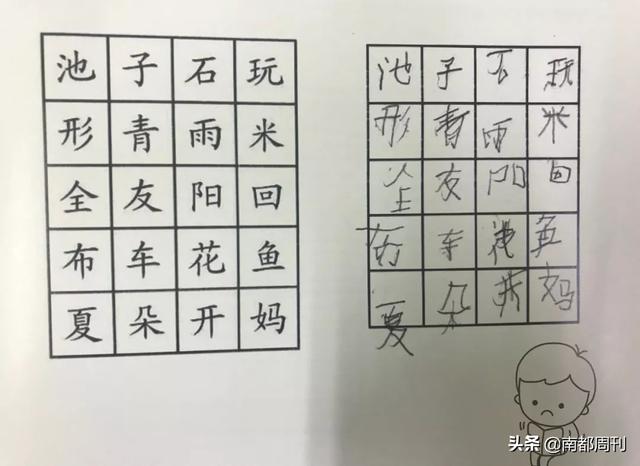 池 子 石 玩
形 青 雨 米
全 友 阳 回
布 车 花 鱼
夏 朵 开 妈
池 子 石 玩
形 青 雨 米
全 友 阳 回
布 车 花 鱼
夏 朵 开 妈
头条 @南都周刊